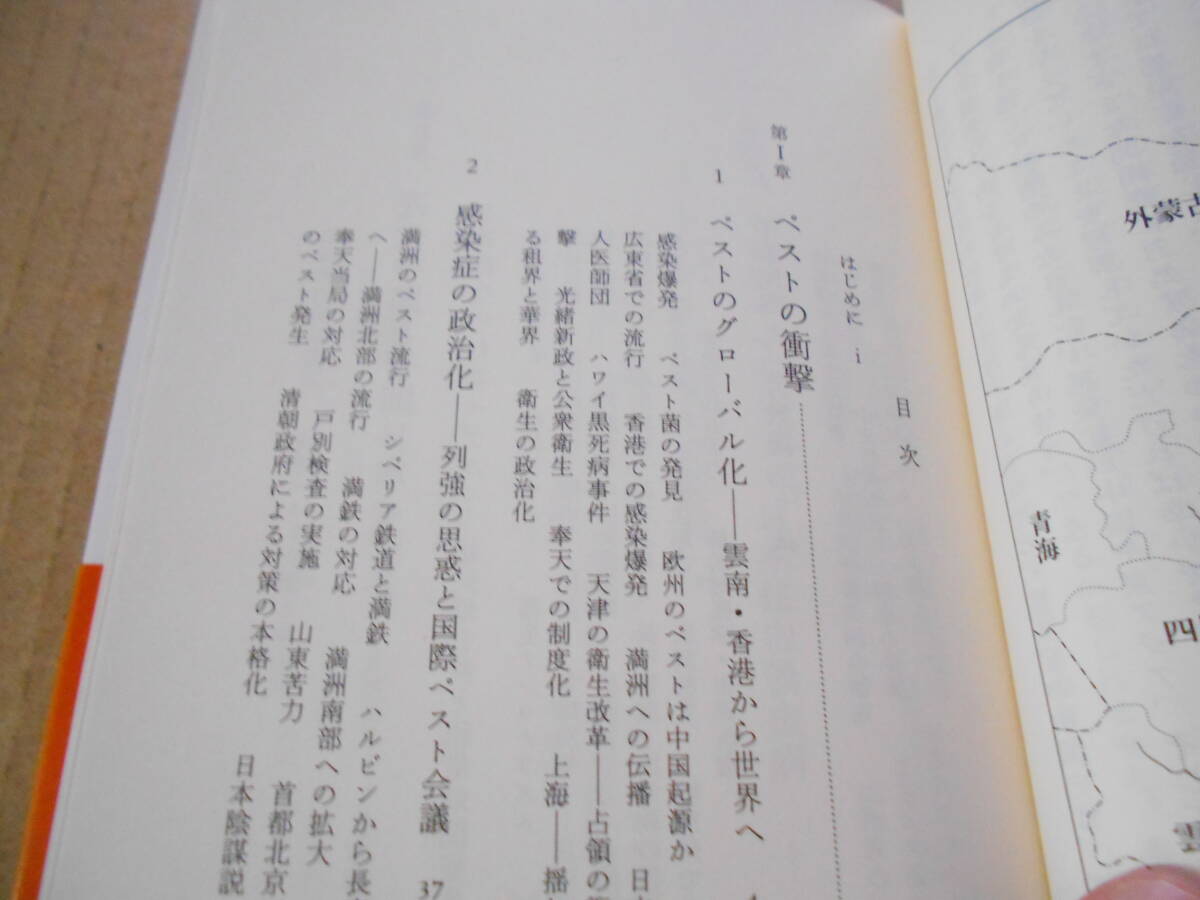 外蒙古
青海
四
雲
目次
はじめに i
第Ⅰ章 ペストの衝撃
1 ペストのグローバル化――雲南・香港から世界へ
感染爆発 ペスト菌の発見 欧州のペストは中国起源か
広東省での流行 香港での感染爆発 満洲への伝播 日
人医師団 ハワイ黒死病事件 天津の衛生改革――占領の
撃 光緒新政と公衆衛生 奉天での制度化 上海――揺
る租界と華界 衛生の政治化
2 感染症の政治化――列強の思惑と国際ペスト会議 37
満洲のペスト流行 シベリア鉄道と満鉄 ハルビンから長
へ――満洲北部の流行 満鉄の対応 満洲南部への拡大
奉天当局の対応 戸別検査の実施 山東苦力 首都北京
のペスト発生 清朝政府による対策の本格化 日本陰謀説